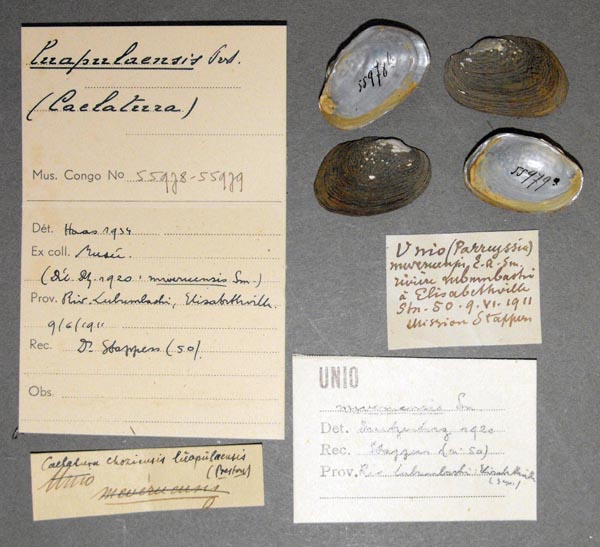 Luapulaensis Pret.
(Caelatura)
Mus. Congo No 55978-55979
Dét. Haas 1934
Ex coll. Musée
(Dét. Dtz. 1920: mweruensis Sm.)
Prov. Riv. Lubumbashi, Elisabethville
9/6/1911
Rec. Dr Stappers (50).
Obs.
55978
55979
Unio (Parreyssia)
mweruensis E.A. Sm.
rivière Lubumbashi
à Elisabethville
Stn. 50. 9. VI. 1911
Mission Stappers
UNIO
mweruensis Sm
Det. Dautzenberg 1920
Rec. Stappers (n° 50)
Prov. Riv. Lubumbashi Elisabethville
Caelatura choziensis luapulaensis
(Preston)
Unio
mweruensis